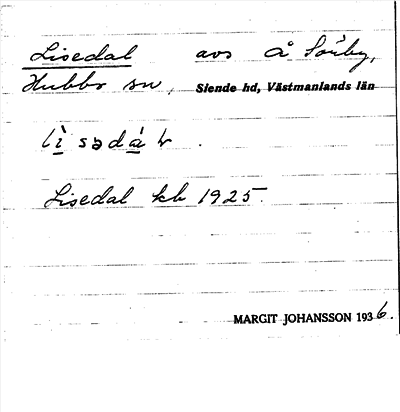 Lisedal avs å Sörby,
Hubbo sn, Siende hd, Västmanlands län
lì sədá l .
Lisedal kb 1925.
MARGIT JOHANSSON 1936.